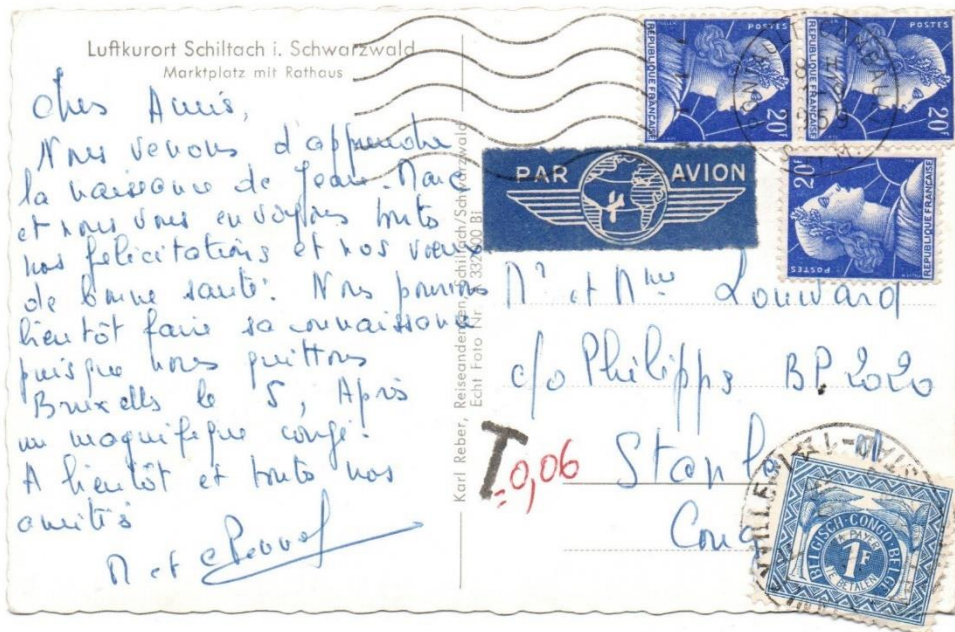 Luftkurort Schiltach i. Schwarzwald
Marktplatz mit Rathaus
Chers Amis,
Nous venons d'apprendre
la naissance de Jean-Marc
et nous vous envoyons toutes
nos félicitations et nos vœux
de bonne santé. Nous pourrons
bientôt faire sa connaissance
puisque nous quittons
Bruxelles le 5, Après
un magnifique congé.
A bientôt et toutes nos
amitiés
M et
Karl Reber, Reiseandenken, Schiltach/Schwarzwald
Echt Foto Nr.
POSTES
RÉPUBLIQUE FRANÇAISE
20F
POSTES
RÉPUBLIQUE FRANÇAISE
20F
PAR AVION
20F
RÉPUBLIQUE FRANÇAISE
POSTES
Mr et Mme Louward
c/o Philipps BP 2020
Stan
Congo
T 0,06
BELGISCH-CONGO BELGE
A PAYER
1F
TE BETALEN